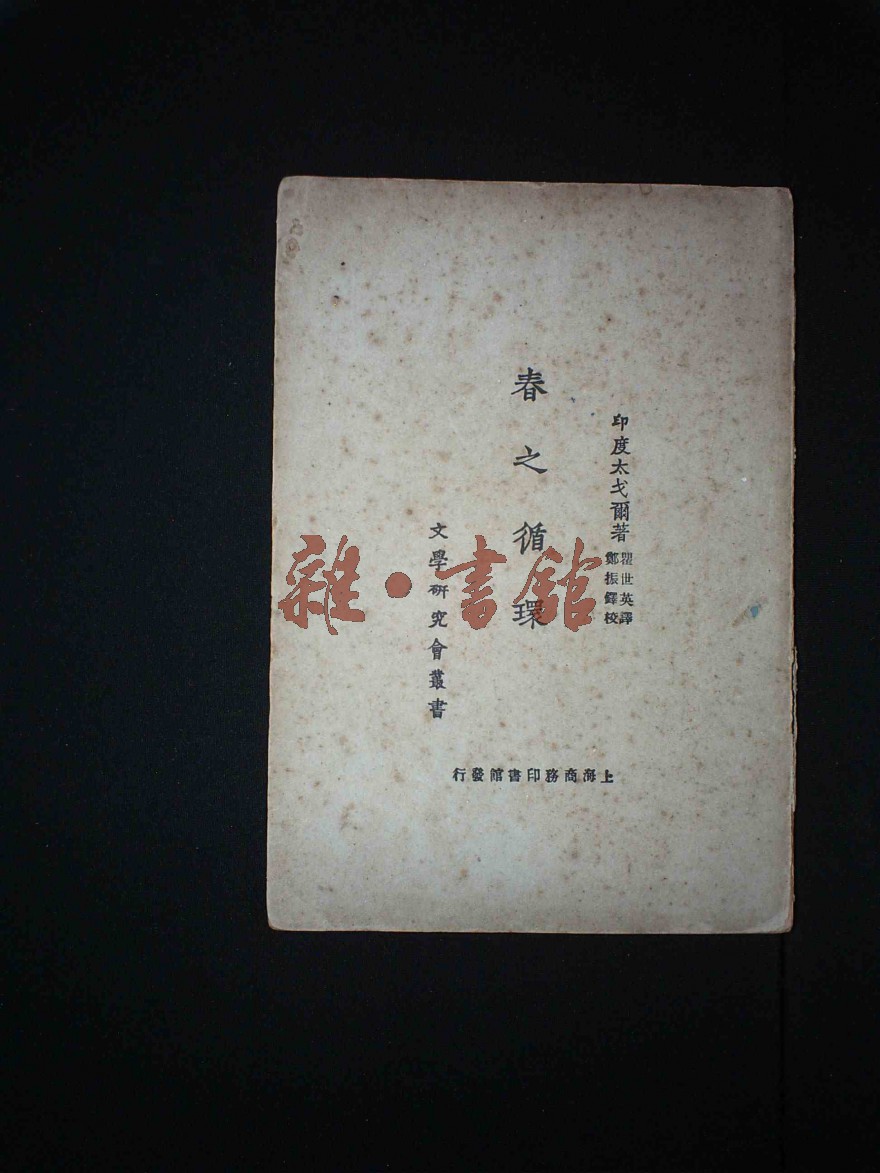 印度太戈爾著
瞿世英譯
鄭振鐸校
春之循環
文學研究會叢書
上海商務印書館發行
雜·書館